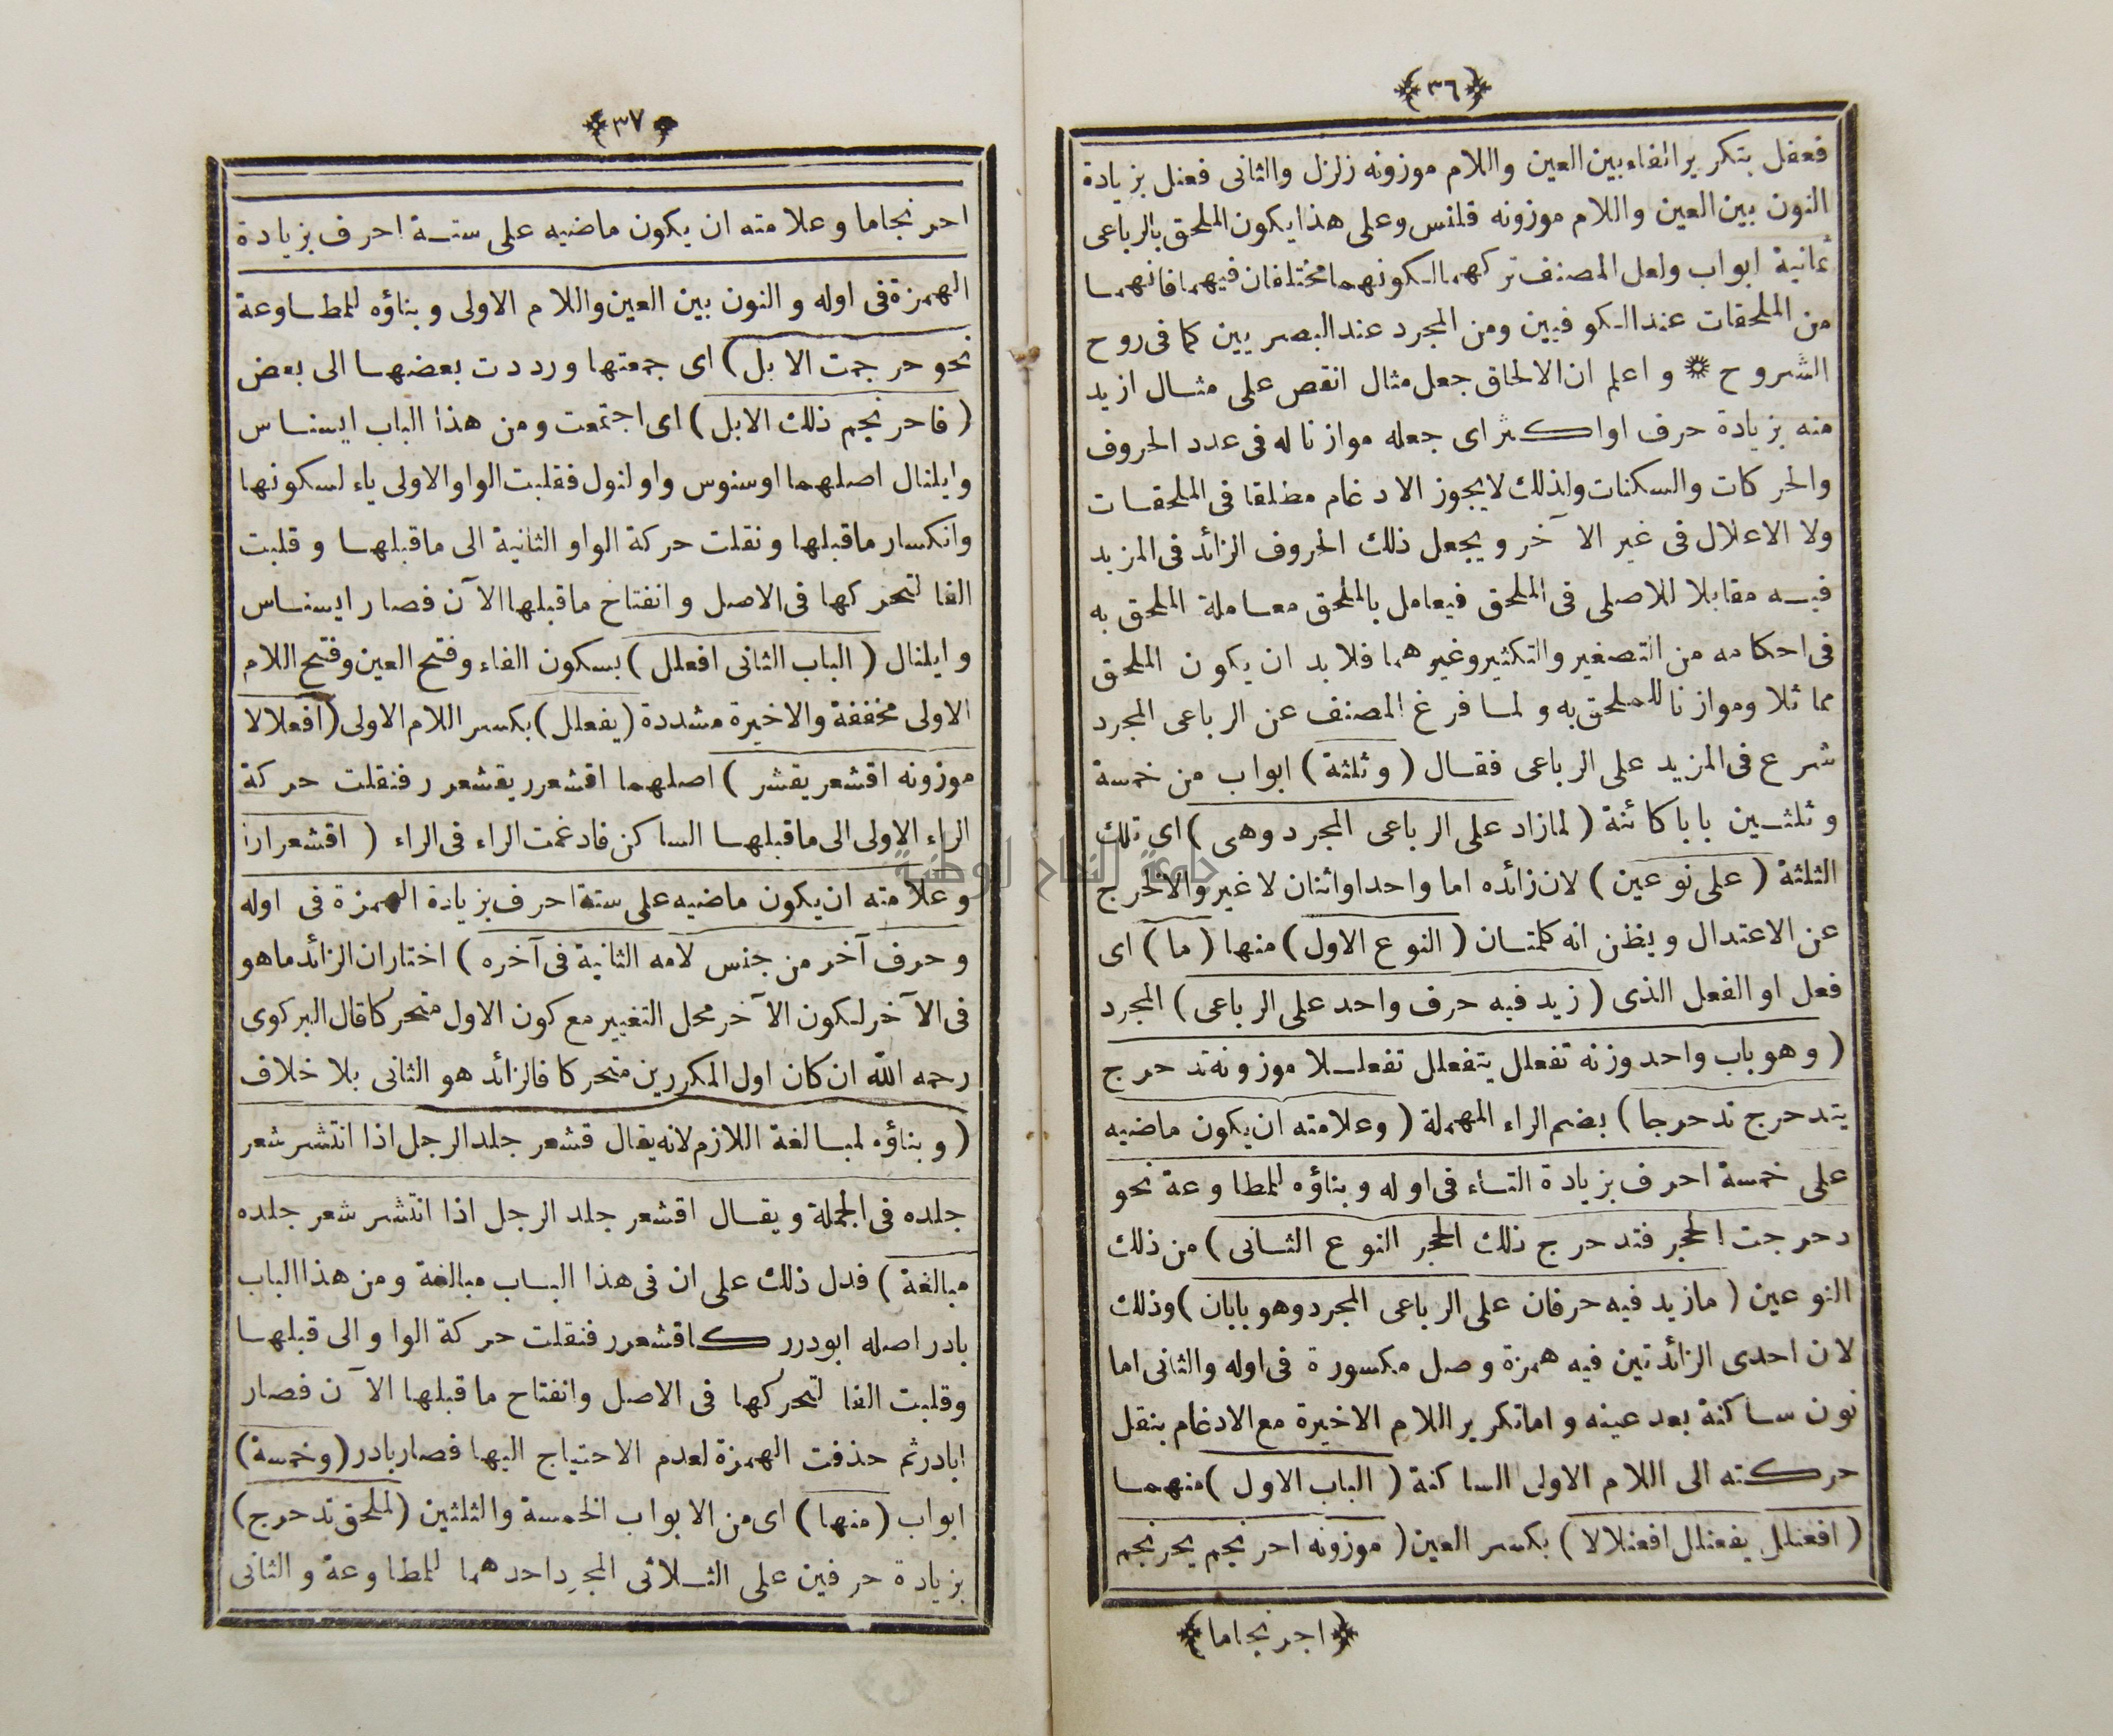 ﴿٣٦﴾
فعفل بتكرير الفاء بين العين واللام موزونه زلزل والثانى فعنل بزيادة
النون بين العين واللام موزونه قلنس وعلى هذا يكون الملحق بالرباعى
ثمانية ابواب ولعل المصنف تركهما لكونهما مختلفان فيهما فانهما
من الملحقات عند الكوفيين ومن المجرد عند البصريين كما فى روح
الشروح ۞ واعلم ان الالحاق جعل مثال انقص على مثال ازيد
منه بزيادة حرف او اكثر اى جعله موازنا له فى عدد الحروف
والحركات والسكنات ولذلك لا يجوز الادغام مطلقا فى الملحقات
ولا الاعلال فى غير الآخر ويجعل ذلك الحروف الزائد فى المزيد
فيه مقابلا للاصلى فى الملحق فيعامل بالملحق معاملة الملحق به
فى احكامه من التصغير والتكثير وغيرهما فلا بد ان يكون الملحق
مماثلا وموازنا للملحق به ولما فرغ المصنف عن الرباعى المجرد
شرع فى المزيد على الرباعى فقال (وثلثة) ابواب من خمسة
وثلثين بابا كائنة (لمازاد على الرباعى المجرد وهى) اى تلك
الثلثة (على نوعين) لان زائده اما واحد او اثنان لا غير والا لخرج
عن الاعتدال ويظن انه كلمتان (النوع الاول) منها (ما) اى
فعل او الفعل الذى (زيد فيه حرف واحد على الرباعى) المجرد
(وهو باب واحد وزنه تفعلل يتفعلل تفعللا موزونه تدحرج
يتدحرج تدحرجا) بضم الراء المهملة (وعلامته ان يكون ماضيه
على خمسة احرف بزيادة التاء فى اوله وبناؤه للمطاوعة نحو
دحرجت الحجر فتدحرج ذلك الحجر النوع الثانى) من ذلك
النوعين (مازيد فيه حرفان على الرباعى المجرد وهو بابان) وذلك
لان احدى الزائدتين فيه همزة وصل مكسورة فى اوله والثانى اما
نون ساكنة بعد عينه واما تكرير اللام الاخيرة مع الادغام بنقل
حركته الى اللام الاولى الساكنة (الباب الاول) منهما
(افعنلل يفعنلل افعنلالا) بكسر العين (موزونه احرنجم يحرنجم
﴿احرنجاما﴾
﴿٣٧﴾
احرنجاما وعلامته ان يكون ماضيه على ستة احرف بزيادة
الهمزة فى اوله والنون بين العين واللام الاولى وبناؤه للمطاوعة
نحو حرجمت الابل) اى جمعتها ورددت بعضها الى بعض
(فاحرنجم ذلك الابل) اى اجتمعت ومن هذا الباب ايسناس
وايلنال اصلهما اوسنوس واولنول فقلبت الواو الاولى ياء لسكونها
وانكسار ماقبلها ونقلت حركة الواو الثانية الى ماقبلها وقلبت
الفا لتحركها فى الاصل وانفتاح ماقبلها الآن فصار ايسناس
وايلنال (الباب الثانى افعلل) بسكون الفاء وفتح العين وفتح اللام
الاولى مخففة والاخيرة مشددة (يفعلل) بكسر اللام الاولى (افعلالا
موزونه اقشعر يقشر) اصلهما اقشعرر يقشعرر فنقلت حركة
الراء الاولى الى ماقبلها الساكن فادغمت الراء فى الراء (اقشعرارا
وعلامته ان يكون ماضيه على ستة احرف بزيادة الهمزة فى اوله
وحرف آخر من جنس لامه الثانية فى آخره) اختار ان الزائد ماهو
فى الآخر لكون الآخر محل التغيير مع كون الاول متحركا قال البركوى
رحمه الله ان كان اول المكررين متحركا فالزائد هو الثانى بلا خلاف
(وبناؤه لمبالغة اللازم لانه يقال قشعر جلد الرجل اذا انتشر شعر
جلده فى الجملة ويقال اقشعر جلد الرجل اذا انتشر شعر جلده
مبالغة) فدل ذلك على ان فى هذا الباب مبالغة ومن هذا الباب
بادر اصله ابودرر كاقشعرر فنقلت حركة الواو الى قبلها
وقلبت الفا لتحركها فى الاصل وانفتاح ماقبلها الآن فصار
ابادر ثم حذفت الهمزة لعدم الاحتياج اليها فصار بادر (وخمسة)
ابواب (منها) اى من الابواب الخمسة والثلثين (لملحق تدحرج)
بزيادة حرفين على الثلاثى المجرد احدهما للمطاوعة والثانى